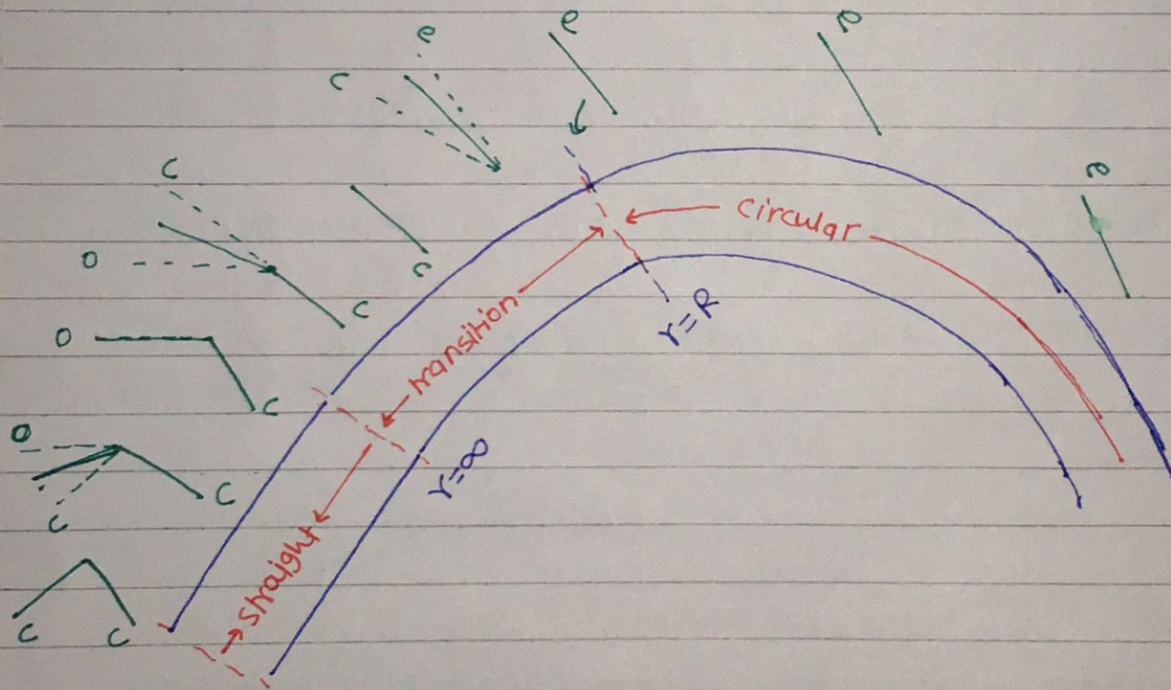 e
e
e
c
c
e
circular
c
o
transition
r=R
c
o
c
o
c
c
r=∞
straight
c
c